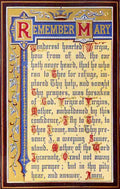 Remember Mary
Tenderest hearted Virgin,
how from of old, the
hath anger heard, that he who
ran to Thee for refuge,
implored Thy help, and sought
Thy prayers, was forsaken
of God. Virgin of Virgins,
Mother, emboldened by this
confidence, I fly to Thee, to
Thee I come, and in Thy pre-
sence I, a weeping sinner,
stand. O Mother of the Word
Incarnate, O cast not away
my prayer; but in thy pity
hear and answer. Amen